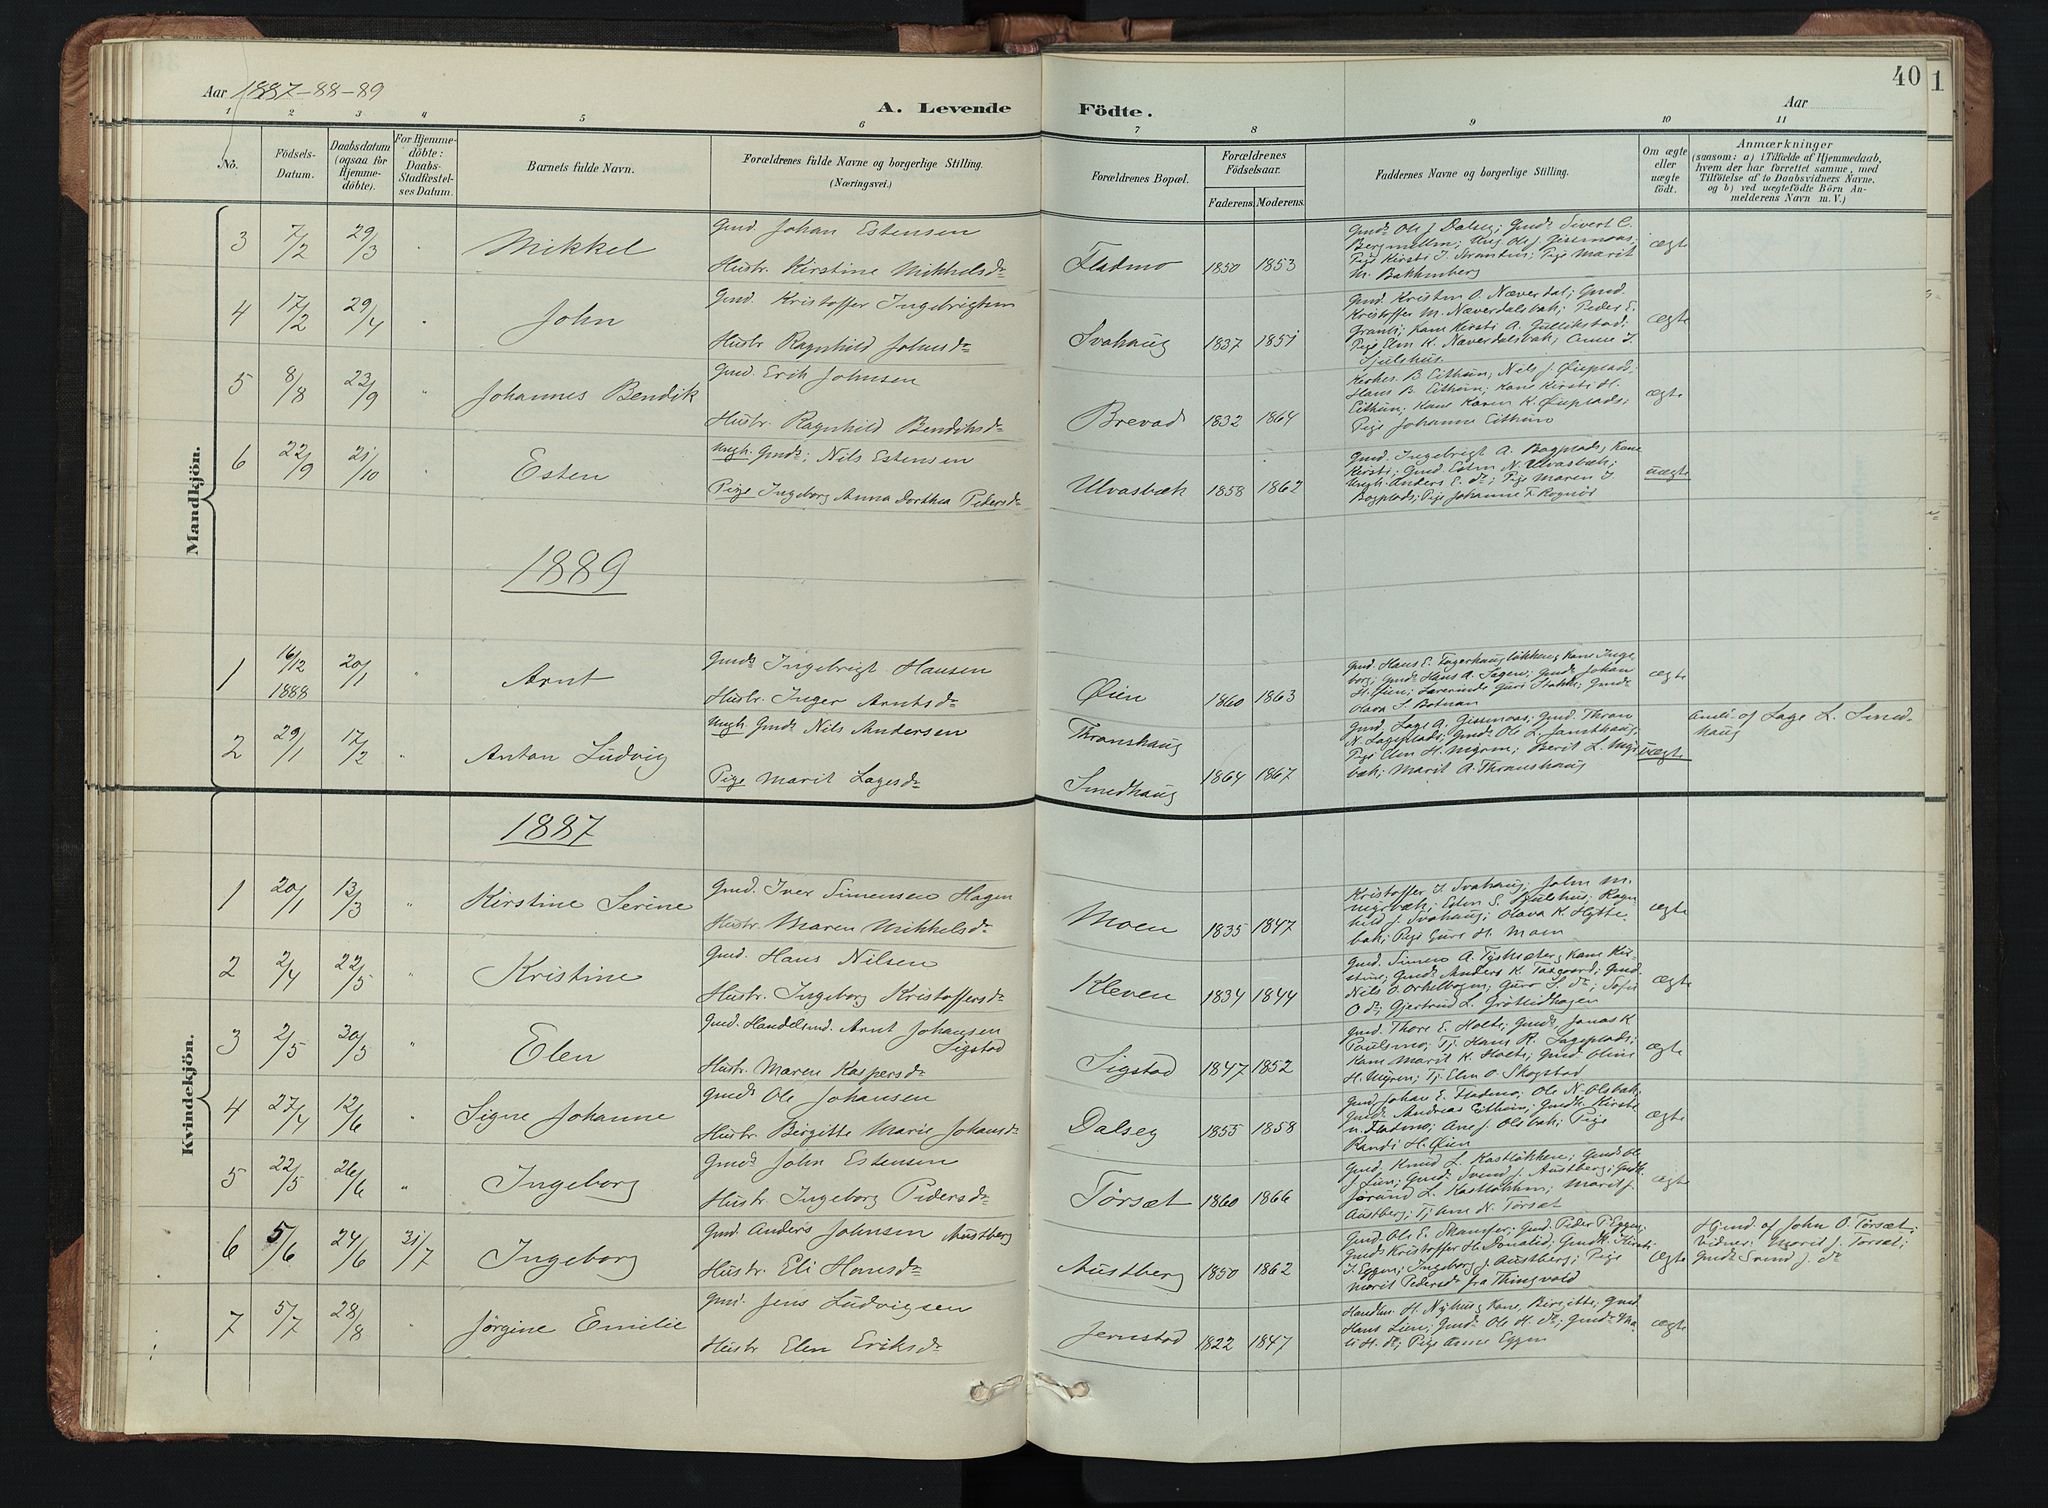 Aar 1887-88-89
A. Levende
Födte.
Aar
40
1
1 2 3 4 5 6 7 8 9 10 11
No.
Födsels-
Datum.
Daabsdatum
(ogsaa for
Hjemme-
döbte).
For Hjemme-
döbte:
Daabs-
Stadfæstel-
ses Datum.
Barnets fulde Navn.
Forældrenes fulde Navne og borgerlige Stilling.
(Næringsvei.)
Forældrenes Bopæl.
Forældrenes
Födselsaar.
Faderens. Moderens.
Faddernes Navne og borgerlige Stilling.
Om ægte
eller
uægte
født.
Anmærkninger
(saasom: a) i Tilfælde af Hjemmedaab,
hvem der har forrettet samme, med
Tilföielse af to Daabsvidners Navne.
og b) ved uægtefödte Börn An-
melderens Navn m. V.)
Mandkjön.
3 7/2 29/3 " Mikkel
Gmd. Johan Estensen
Hustr. Kirstine Mikkelsdr
Fladmo 1850 1853
Gmdr. Ole J. Dalseg; Gmdr. Sivert C.
Pige Marit
M. Bakkenberg
ægte
4 17/2 29/4 " John
Gmd. Kristoffer Ingebrigtsen
Hustr. Ragnhild Johnsdr
Svahaug 1837 1851
Gmd. Kristen O. Næverdal; Gmd.
Kristoffer M. Næverdalsbak; Peder E.
Granli; Kane Kirsti A. Gullikstad.
Pige Elen K. Næverdalsbak; Anne I.
Sjulshus
ægte
5 8/8 23/9 " Johannes Bendik
Gmd. Erik Johnsen
Hustr. Ragnhild Bendiksdr
Brevad 1832 1864
Hans B. Eithun; Kane Kirsti H.
Eithun; Kane Karen K. Øieplads;
Pige Johanne Eithun
ægte
6 22/9 21/10 " Esten
Ungk. Gmds; Nils Estensen
Pige Ingeborg Anna Dorthea Pedersdr
Ulvasbæk 1858 1862
Gmd. Ingebrigt A. Bogplads; Kane
Kirsti; Gmd. Esten N. Ulvasbæk;
Ungk. Anders E. dr; Pige Maren I.
Bogplads; Pige Johanne F. Rognøs
uægte
1889
1 16/12 1888 20/1 " Arnt
Gmds Ingebrigt Hansen
Hustr. Inger Arntsdr
Øien 1860 1863
Gmd. Hans E. Fagerhaugløkken; Kane Inge-
borg; Gmds Hans A. Sagen; Gmds Johan
H. Øien; Lærerinde Guri Stokke; Gmdr
Olava S. Botnan
ægte
2 29/1 17/2 " Anton Ludvig
Ungk. Gmds Nils Andersen
Pige Marit Lagesdr
Thronshaug
Smedhaug
1864 1867
Gmd. Lage A. Gissmoas; Gmd. Thron
N. Lageplads; Gmds Ole L. Jamthaug;
Pige Elen H. Myren; Berit L. Myrs-
bak; Marit A. Thronshaug
uægte
Anm. af Lage L. Smed-
haug
Kvindekjön.
1887
1 20/1 13/3 " Kirstine Serine
Gmd. Iver Simensen Hagen
Hustr. Maren Mikkelsdr
Moen 1835 1847
Kristoffer I. Svahaug; John M.
Myrbæk; Esten E. Sjulshus; Ragn-
hild J. Svahaug; Olava K. Hytte-
bak; Pige Guri H. Moen
ægte
2 2/4 22/5 " Kristine
Gmd. Hans Nilsen
Hustr. Ingeborg Kristoffersdr
Kleven 1834 1844
Gmd. Simen A. Tyshæter; Kane Kir-
stine; Gmds Anders K. Torgaard; Gmd.
Nils O. Orkelbogen; Guro S. dr; Sofie
O. dr; Gjertrud L. Grøtlidhagen
ægte
3 2/5 30/5 " Elen
Gmd. Handelsmd. Arnt Johansen
Sigstad
Hustr. Maren Kaspersdr
Sigstad 1847 1852
Gmd. Thore E. Holte; Gmds Jonas K.
Paulsmo; Tj. Hans R. Lageplads;
Kane Marit K. Holte; Gmd. Oline
H. Myren; Tj. Elen O. Skogstad
ægte
4 27/4 12/6 " Signe Johanne
Gmds Ole Johansen
Hustr. Birgitte Marie Johansdr
Dalseg 1855 1858
Gmd. Johan E. Fladmo; Ole N. Olsbak;
Gmds Andreas Eithun; Gmdk. Kirsti
M. Fladmo; Ane J. Olsbak; Pige
Randi H. Øien
ægte
5 22/5 26/6 " Ingeborg
Gmds John Estensen
Hustr. Ingeborg Pedersdr
Tørsæt 1860 1866
Gmd. Knud L. Kastløkken; Gmds Ole
J. Lien; Gmds Svend J. Austberg; Gmdk.
Jørund L. Kastløkken; Marit J.
Austberg; Tj. Ane N. Tørsæt
ægte
6 5/6 24/6 31/7 Ingeborg
Gmd. Anders Johnsen Austberg
Hustr. Eli Hansdr
Austberg 1850 1862
Gmd. Ole E. Skamfer; Gmd. Peder P. Eggen;
Gmds Kristoffer H. Donalid; Gmdk. Kirsti
I. Eggen; Ingeborg J. Austberg; Pige
Marit Pedersdr fra Thingvold
ægte
Hjmd. af John O. Tørsæt;
Vidner: Marit J. Tørsæt;
Gmds Svend J. dr
7 5/7 28/8 " Jørgine Emilie
Gmd. Jens Ludvigsen
Hustr Elen Eriksdr
Jernstad 1822 1847
Handlm. H. Nyhus; Kane Birgitte; Gmd.
Hans Lien; Gmds Ole H. dr; Gmdr Ma-
li H. dr; Pige Anne Eggen
ægte